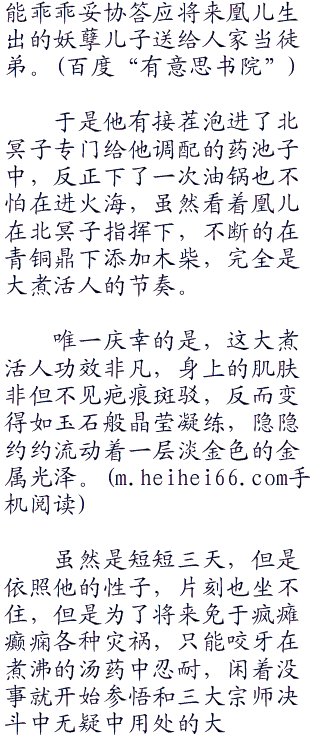 能乖乖妥协答应将来凰儿生
出的妖孽儿子送给人家当徒
弟。(百度“有意思书院”)
于是他有接茬泡进了北
冥子专门给他调配的药池子
中，反正下了一次油锅也不
怕在进火海，虽然看着凰儿
在北冥子指挥下，不断的在
青铜鼎下添加木柴，完全是
大煮活人的节奏。
唯一庆幸的是，这大煮
活人功效非凡，身上的肌肤
非但不见疤痕斑驳，反而变
得如玉石般晶莹凝练，隐隐
约约流动着一层淡金色的金
属光泽。(m.heihei66.com手
机阅读)
虽然是短短三天，但是
依照他的性子，片刻也坐不
住，但是为了将来免于疯瘫
癫痫各种灾祸，只能咬牙在
煮沸的汤药中忍耐，闲着没
事就开始参悟和三大宗师决
斗中无疑中用处的大